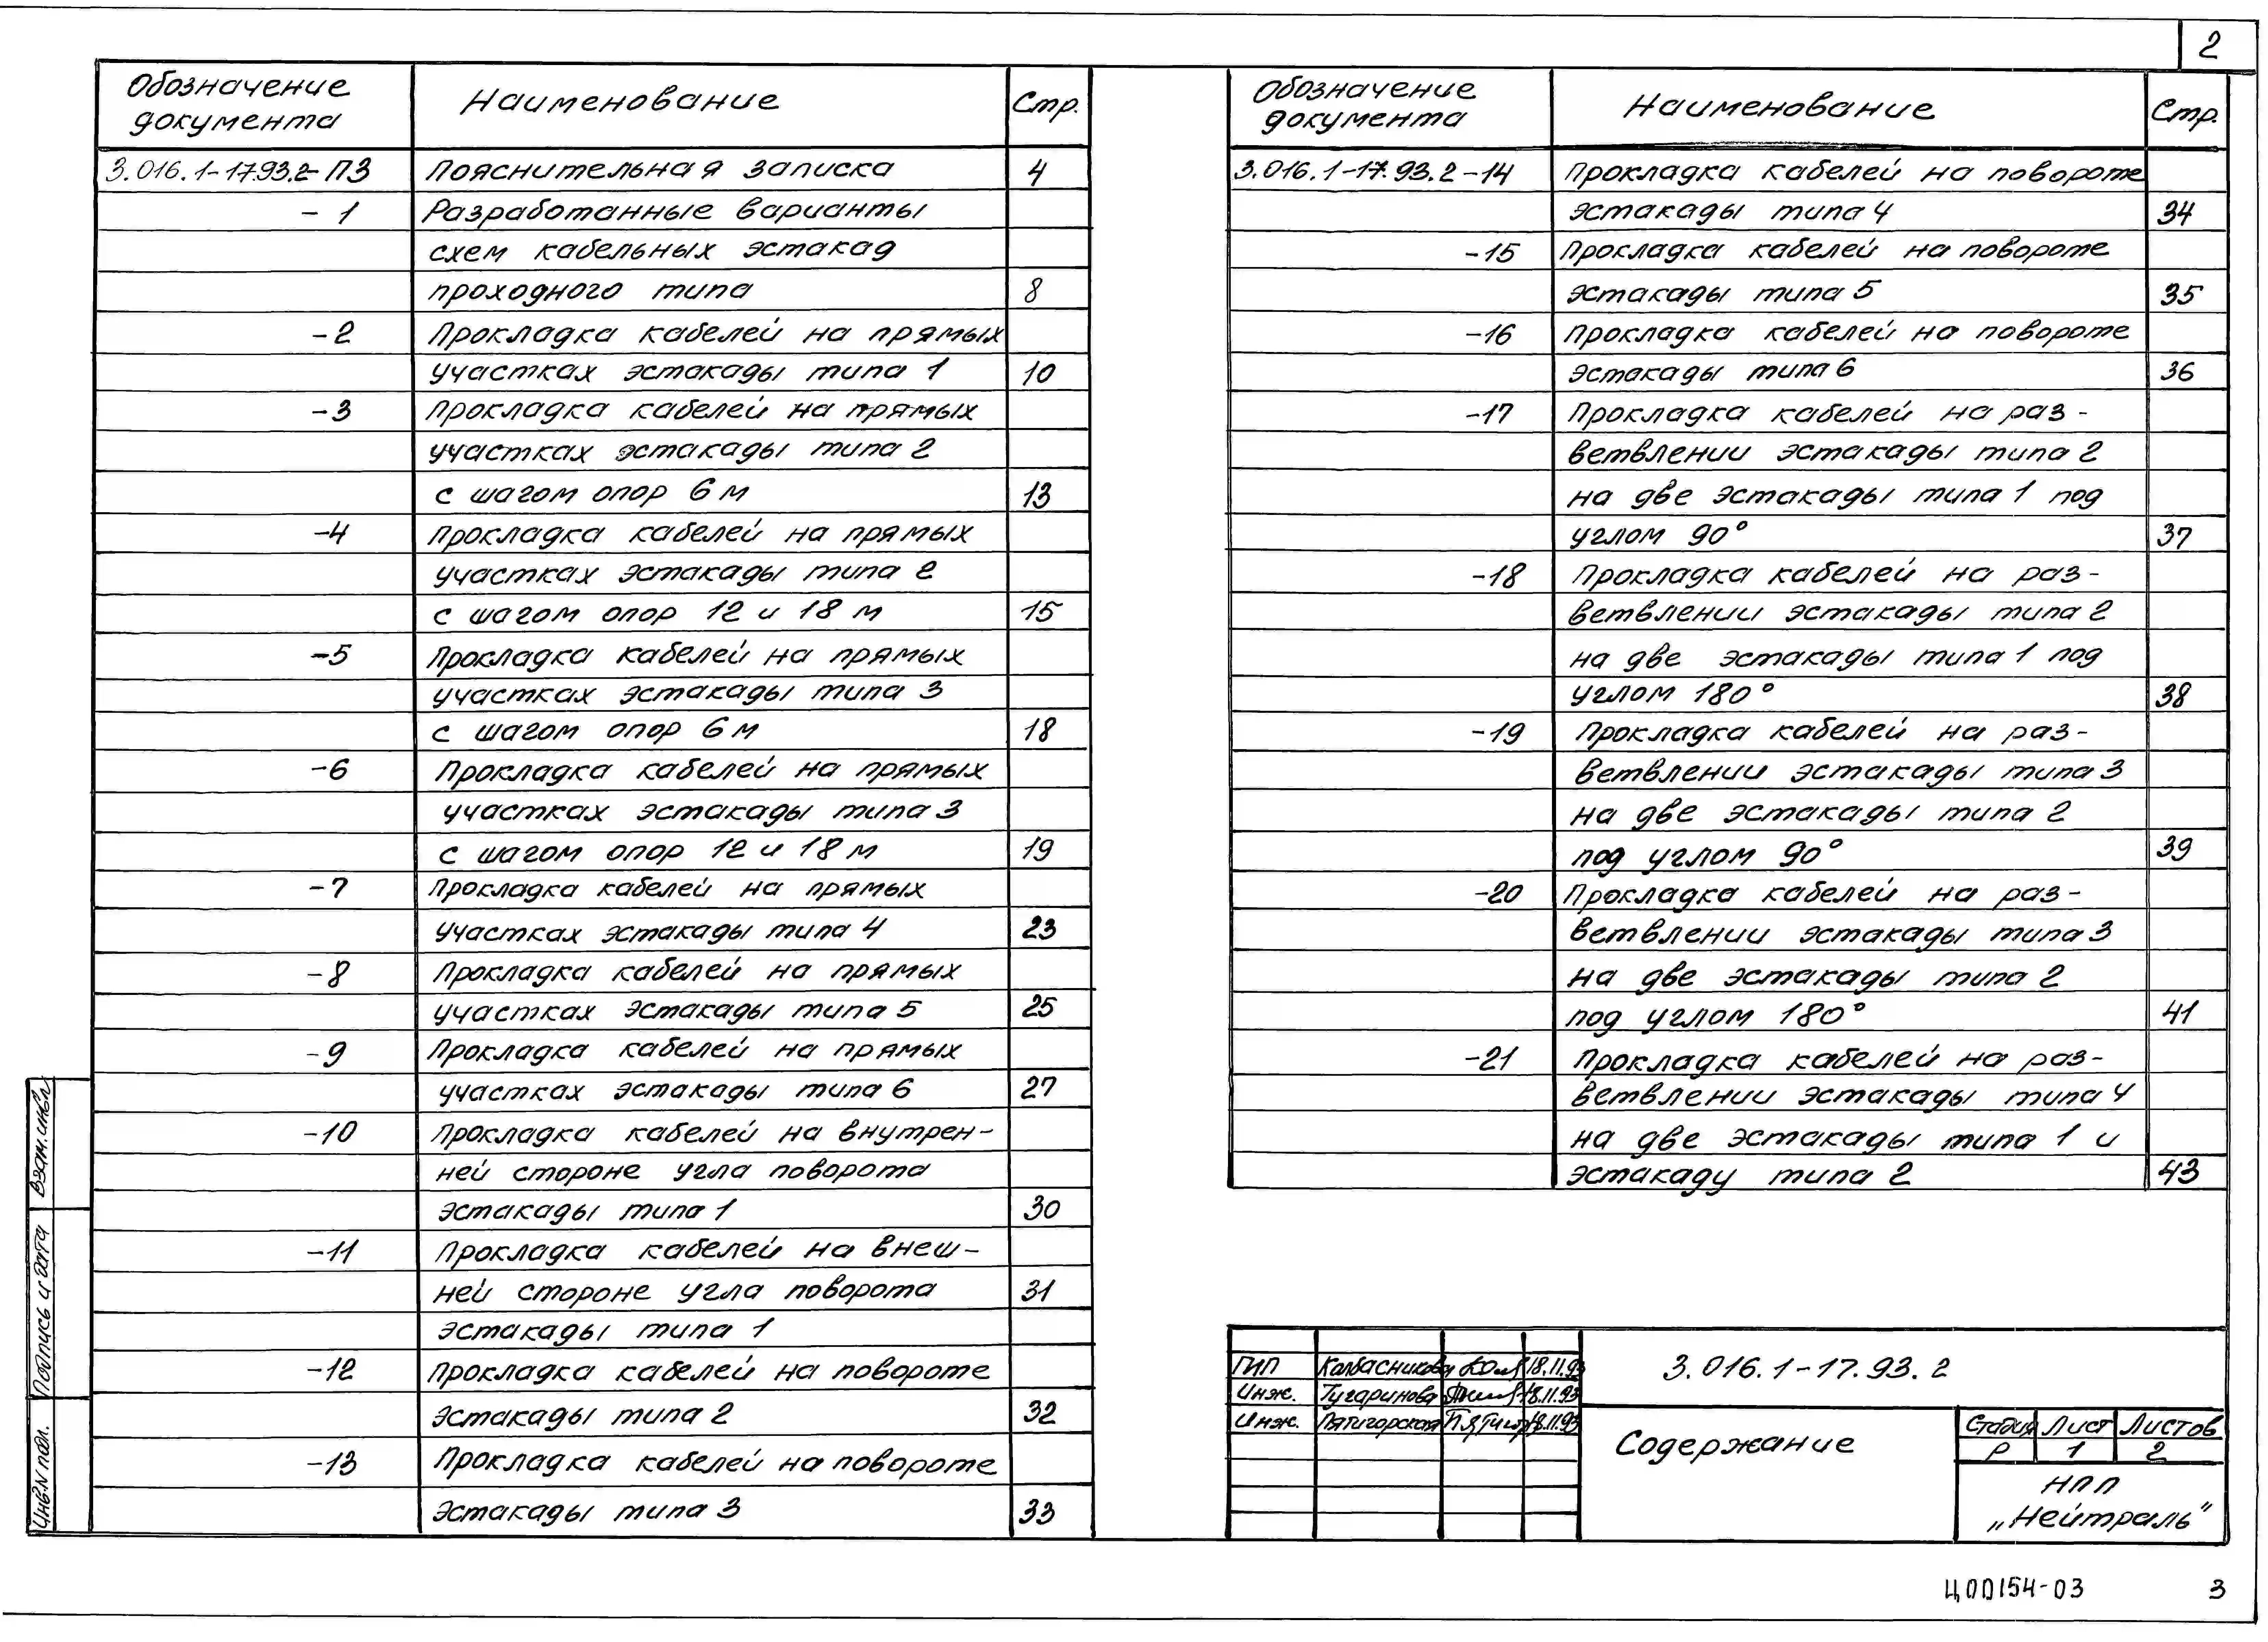 2
Обозначение документа Наименование Стр.
3.016.1-17.93.2-ПЗ Пояснительная записка 4
-1 Разработанные варианты
схем кабельных эстакад
проходного типа 8
-2 Прокладка кабелей на прямых
участках эстакады типа 1 10
-3 Прокладка кабелей на прямых
участках эстакады типа 2
с шагом опор 6 м 13
-4 Прокладка кабелей на прямых
участках эстакады типа 2
с шагом опор 12 и 18 м 15
-5 Прокладка кабелей на прямых
участках эстакады типа 3
с шагом опор 6 м 18
-6 Прокладка кабелей на прямых
участках эстакады типа 3
с шагом опор 12 и 18 м 19
-7 Прокладка кабелей на прямых
участках эстакады типа 4 23
-8 Прокладка кабелей на прямых
участках эстакады типа 5 25
-9 Прокладка кабелей на прямых
участках эстакады типа 6 27
-10 Прокладка кабелей на внутрен-
ней стороне угла поворота
эстакады типа 1 30
-11 Прокладка кабелей на внеш-
ней стороне угла поворота 31
эстакады типа 1
-12 Прокладка кабелей на повороте
эстакады типа 2 32
-13 Прокладка кабелей на повороте
эстакады типа 3 33
Обозначение документа Наименование Стр.
3.016.1-17.93.2-14 Прокладка кабелей на повороте
эстакады типа 4 34
-15 Прокладка кабелей на повороте
эстакады типа 5 35
-16 Прокладка кабелей на повороте
эстакады типа 6 36
-17 Прокладка кабелей на раз-
ветвлении эстакады типа 2
на две эстакады типа 1 под
углом 90° 37
-18 Прокладка кабелей на раз-
ветвлении эстакады типа 2
на две эстакады типа 1 под
углом 180° 38
-19 Прокладка кабелей на раз-
ветвлении эстакады типа 3
на две эстакады типа 2
под углом 90° 39
-20 Прокладка кабелей на раз-
ветвлении эстакады типа 3
на две эстакады типа 2
под углом 180° 41
-21 Прокладка кабелей на раз-
ветвлении эстакады типа 4
на две эстакады типа 1 и
эстакаду типа 2 43
Взам.инв.
Подпись и дата
Инв.N подл.
ГИП Колбасникова 18.11.93
Инж. Тугаринова 18.11.93
Инж. Пятигорская 18.11.93
3.016.1-17.93.2
Содержание
Стадия Лист Листов
Р 1 2
НПП
„Нейтраль"
Ц00154-03 3